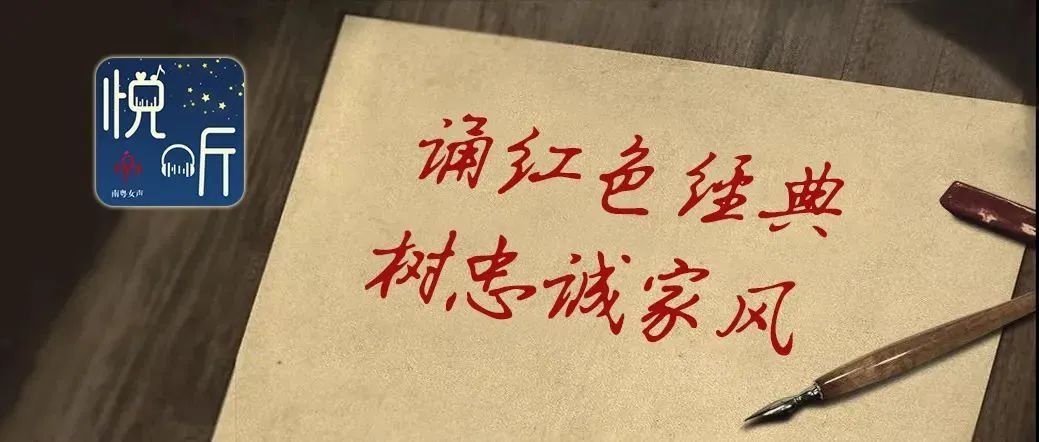 悦听
南粤女声
诵红色经典
树忠诚家风